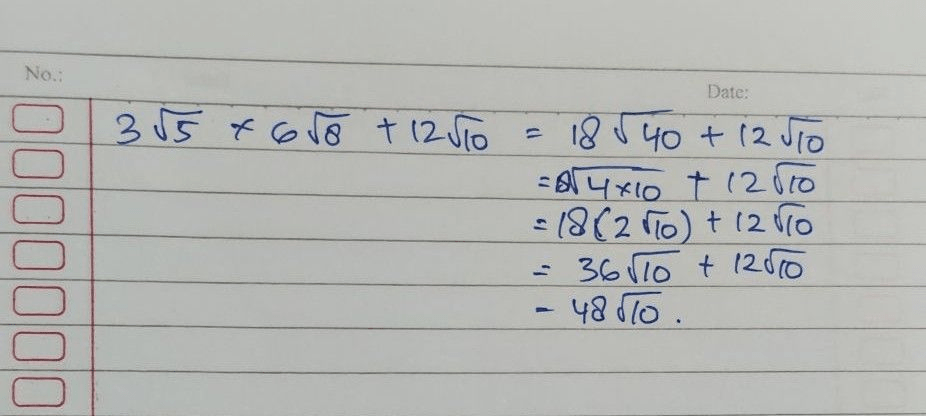 No.:
Date:
3√5 × 6√8 + 12√10 = 18√40 + 12√10
= √4×10 + 12√10
= 18(2√10) + 12√10
= 36√10 + 12√10
- 48√10.